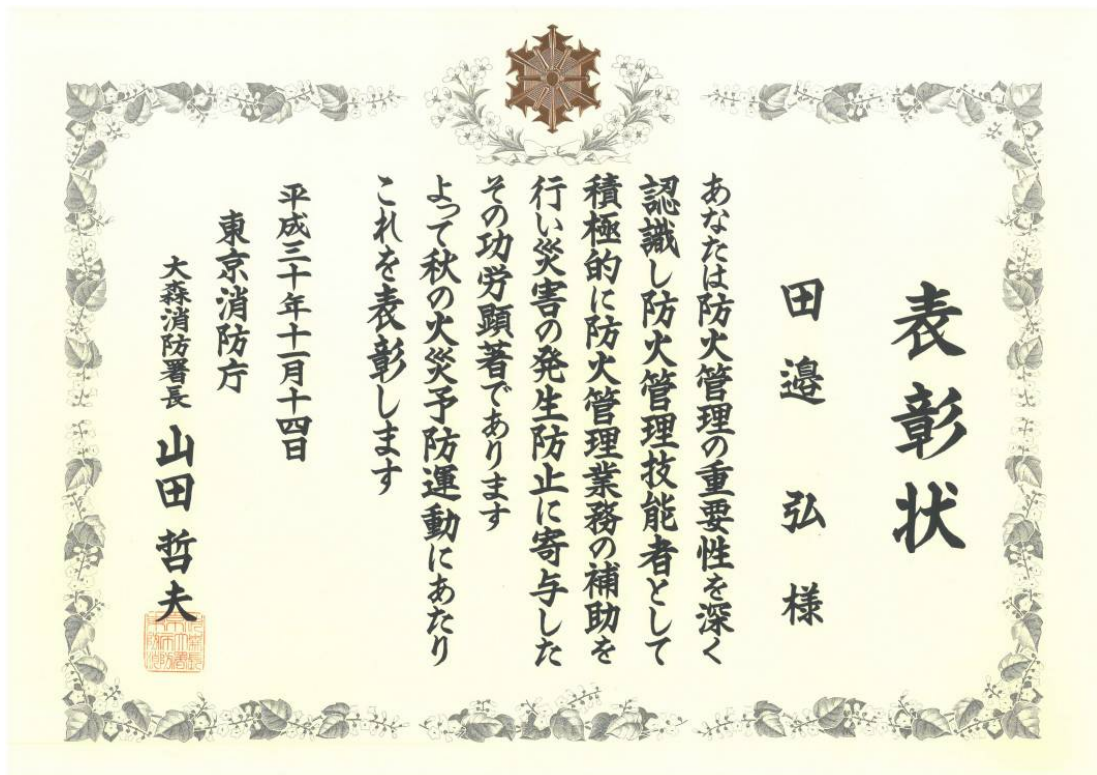 表彰状
田邉弘様
あなたは防火管理の重要性を深く
認識し防火管理技能者として
積極的に防火管理業務の補助を
行い災害の発生防止に寄与した
その功労顕著であります
よって秋の火災予防運動にあたり
これを表彰します
平成三十年十一月十四日
東京消防庁
大森消防署長 山田哲夫